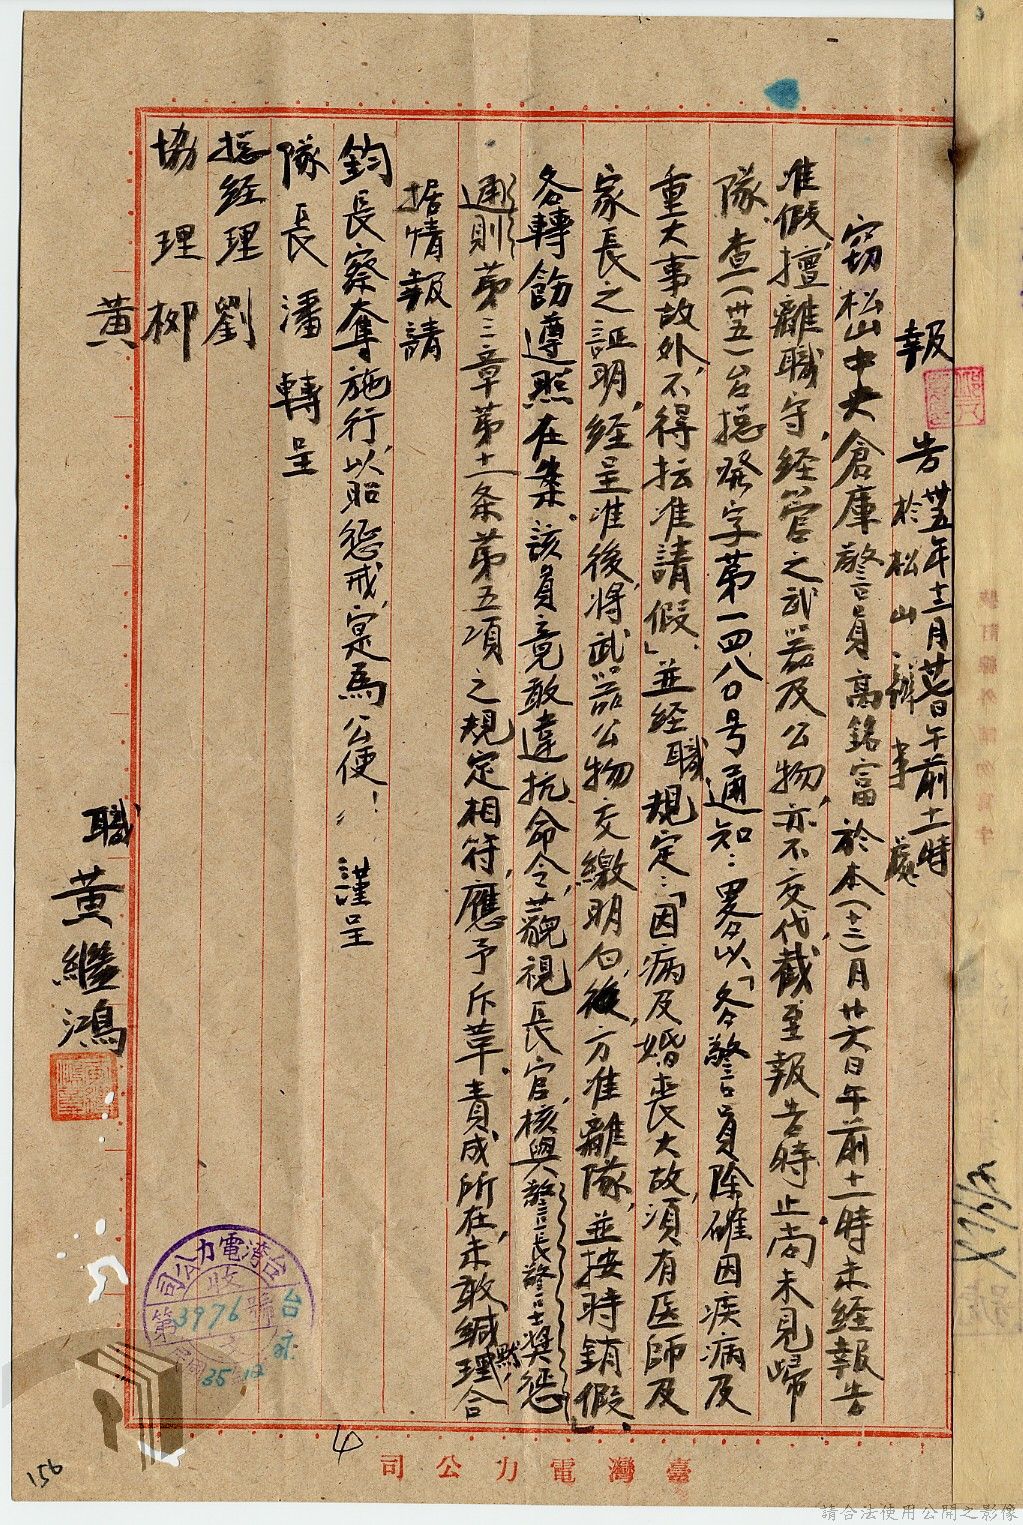 報告 卅五年十二月廿七日午前十一時
於松山辦事處
竊松山中央倉庫警員高銘富於本(十二)月廿六日午前十一時未經報告
准假,擅離職守,経管之武器及公物,亦不交代,截至報告時止尚未見歸
隊,查(卅五)台揔發字第一四八〇号通知:畧以「各警員除確因疾病及
重大事故外,不得抎准請假」並経職規定:「因病及婚喪大故,須有医師及
家長之証明,經呈准後,將武器公物交繳明白後,方准離隊,並按時銷假」
各轉飭遵照在案。該員竟敢違抗命令,藐視長官,核與警長警士奨懲
通則第三章第十一条第五項之規定相符,應予斥革,責成所在,未敢緘默,理合
据情報請
鈞長察奪施行,以昭懲戒,寔為公便! 謹呈
隊長潘 轉呈
揔経理劉
協理柳
黃
職黃繼鴻
台灣電力公司
收
第3976號
35 12
臺灣電力公司
4
156
請合法使用公開之影像